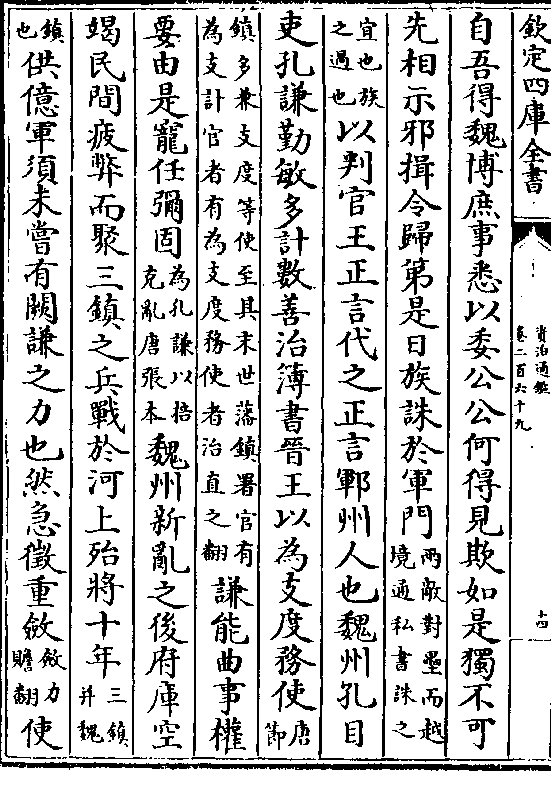 欽定四庫全書
資治通鑑
卷二百六十九
十四
自吾得魏博庶事悉以委公公何得見欺如是獨不可
先相示邪揖令歸第是日族誅於軍門兩敵對壘而越境通私書誅之
宜也族之過也以判官王正言代之正言鄆州人也魏州孔目
吏孔謙勤敏多計數善治簿書晉王以為支度務使唐節
鎮多兼支度等使至其末世藩鎮署官有為支計官者有為支度務使者治直之翻謙能曲事權
要由是寵任彌固為孔謙以掊克亂唐張本魏州新亂之後府庫空
竭民間疲弊而聚三鎮之兵戰於河上殆將十年三鎮并魏
鎮也供億軍須未嘗有闕謙之力也然急徵重斂斂力贍翻使